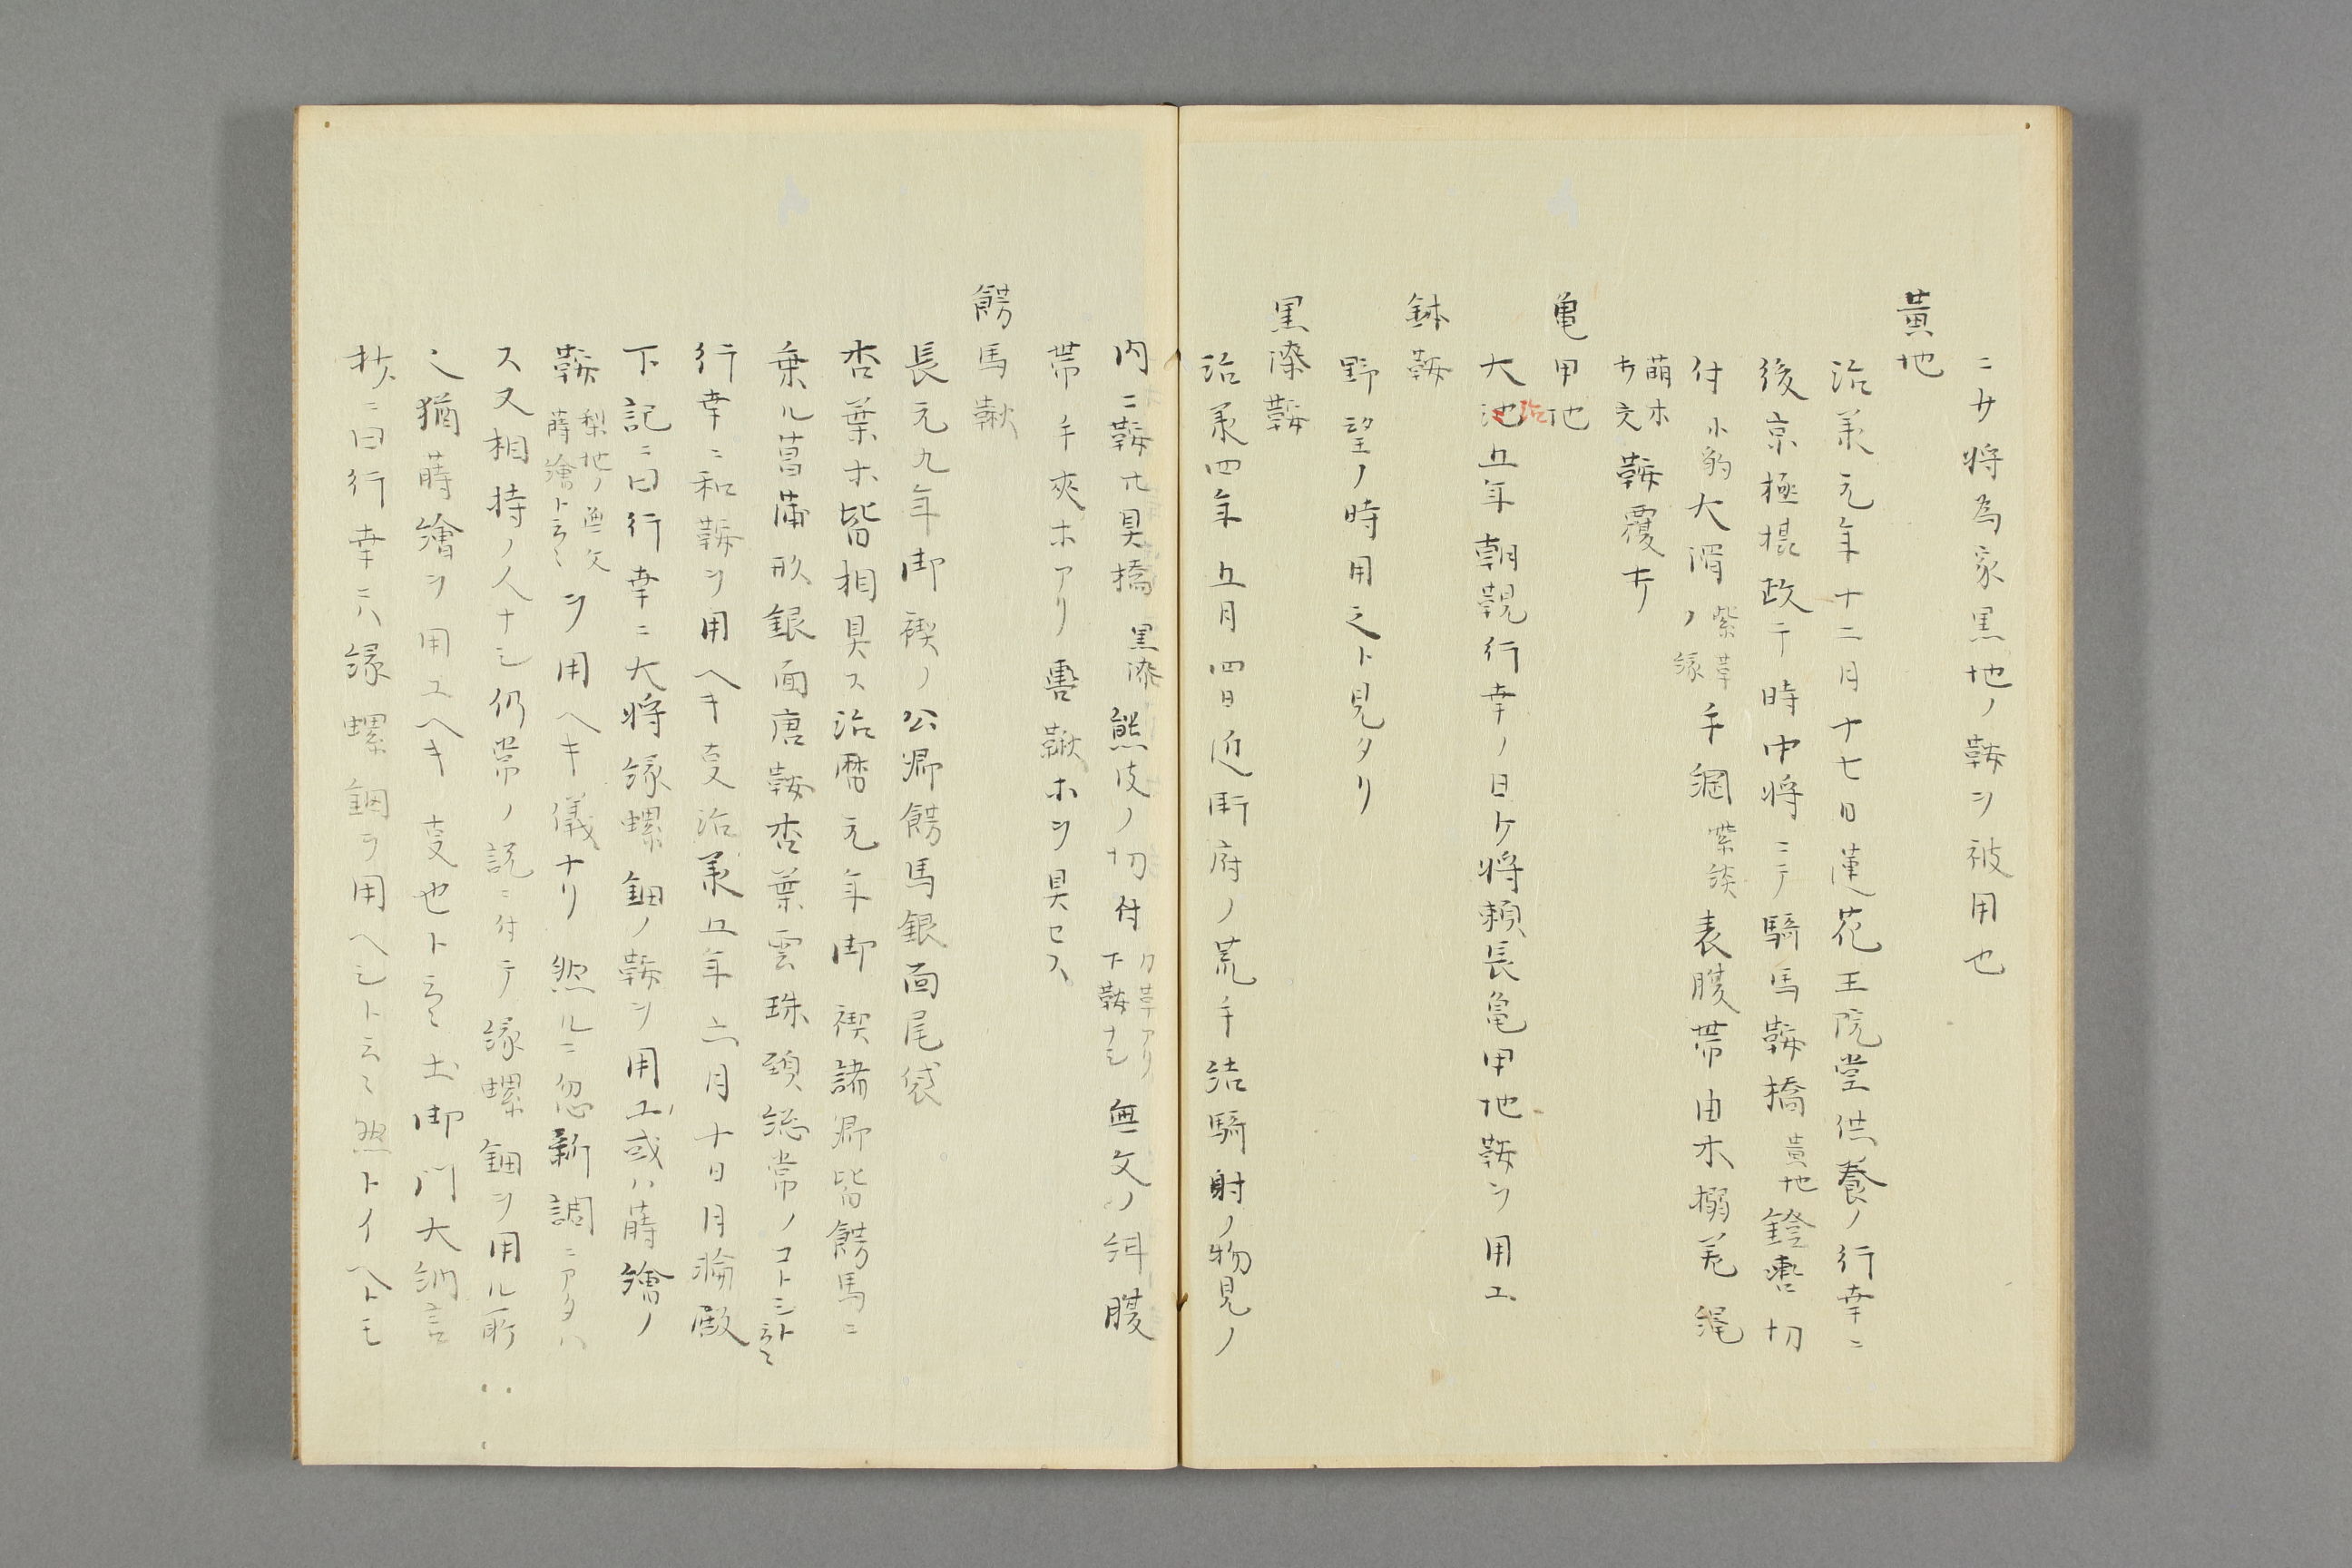 ニサ将為家黒地ノ鞍ヲ被用也
黄地
治承元年十二月十七日蓮花王院堂供養ノ行幸ニ
後京極摂政于時中将ニテ騎馬鞍橋黄地鐙轡切
付小豹大滑紫革ノ縁手綱紫談表腹帯由木搦差縄
萌木鞍覆
亀甲地
大治五年朝覲行幸ノ日ケ将頼長亀甲地鞍ヲ用エ
鉢鞍
野望ノ時用之ト見タリ
黒漆鞍
治承四年五月四日近衛府ノ荒手結騎射ノ物見ノ
内ニ鞍具橋黒漆熊皮ノ切付力革アリ下鞍ナシ無文ノ絹腹
帯手夾ホアリ轡鞦ホヲ具セス
餝馬鞦
長元九年御禊ノ公卿餝馬銀面尾袋
杏葉ホ皆相具ス治暦元年御禊諸卿皆餝馬ニ
乗ル菖蒲形銀面唐鞍杏葉雲珠頸総常ノコトシト云々
行幸ニ和鞍ヲ用ヘキ支治承五年六月十日月輪殿
下記ニ曰行幸ニ大将縁螺鈿ノ鞍ヲ用エ或ハ蒔繪ノ
鞍梨地ノ無文蒔繪ト云々ヲ用ヘキ儀ナリ然ルニ忽新調ニアタハ
ス又相持ノ人ナシ仍常ノ説ニ付テ縁螺鈿ヲ用ル所
之猶蒔繪ヲ用エヘキ支也ト云々土御門大納言
抄ニ曰行幸ニハ縁螺鈿ヲ用ヘシト云々然トイヘトモ